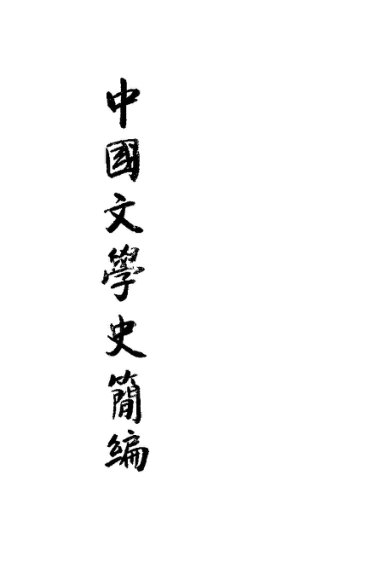 中國文學史簡編